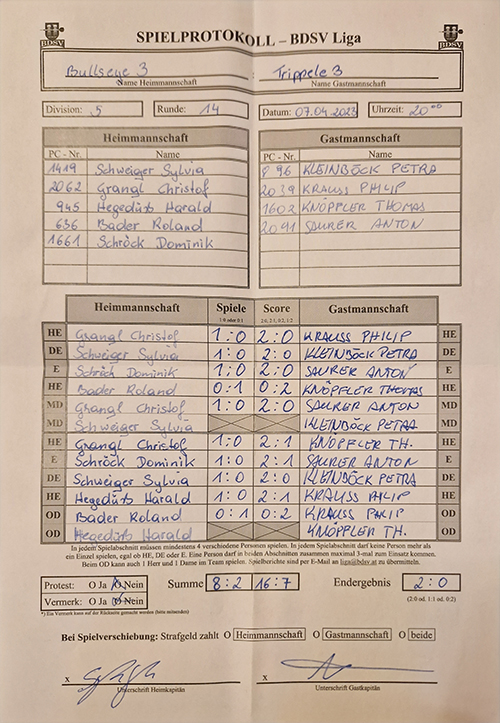 SPIELPROTOKOLL – BDSV Liga
BDSV BDSV
Bullseye 3 : Trippele 3
Name Heimmannschaft Name Gastmannschaft
Division: 5 Runde: 14 Datum: 07.04.2023 Uhrzeit: 20°°
Heimmannschaft Gastmannschaft
PC - Nr. Name PC - Nr. Name
1419 Schweiger Sylvia 96 KLEINBÖCK PETRA
2062 Grangl Christof 2039 KRAUSS PHILIP
945 Hegedüs Harald 1602 KNÖPFLER THOMAS
636 Bader Roland 2091 SAURER ANTON
1661 Schröck Dominik
Heimmannschaft Spiele Score Gastmannschaft
1:0 oder 0:1 2:0, 2:1, 0:2, 1:2
HE Grangl Christof 1:0 2:0 KRAUSS PHILIP HE
DE Schweiger Sylvia 1:0 2:0 KLEINBÖCK PETRA DE
E Schröck Dominik 1:0 2:0 SAURER ANTON E
HE Bader Roland 0:1 0:2 KNÖPFLER THOMAS HE
MD Grangl Christof 1:0 2:0 SAURER ANTON MD
MD Schweiger Sylvia KLEINBÖCK PETRA MD
HE Grangl Christof 1:0 2:1 KNÖPFLER TH. HE
E Schröck Dominik 1:0 2:1 SAURER ANTON E
DE Schweiger Sylvia 1:0 2:0 KLEINBÖCK PETRA DE
HE Hegedüs Harald 1:0 2:1 KRAUSS PHILIP HE
OD Bader Roland 0:1 0:2 KRAUSS PHILIP OD
OD Hegedüs Harald KNÖPFLER TH. OD
In jedem Spielabschnitt müssen mindestens 4 verschiedene Personen spielen. In jedem Spielabschnitt darf keine Person mehr als
ein Einzel spielen, egal ob HE, DE oder E. Eine Person darf in beiden Abschnitten zusammen maximal 3-mal zum Einsatz kommen.
Beim OD kann auch 1 Herr und 1 Dame im Team spielen. Spielberichte sind per E-Mail an liga@bdsv.at zu übermitteln.
Protest: O Ja O Nein Summe 8:2 16:7 Endergebnis 2:0
Vermerk: O Ja O Nein (2:0 od. 1:1 od. 0:2)
*) Ein Vermerk kann auf der Rückseite gemacht werden (bitte mitsenden)
Bei Spielverschiebung: Strafgeld zahlt O Heimmannschaft O Gastmannschaft O beide
x x
Unterschrift Heimkapitän Unterschrift Gastkapitän